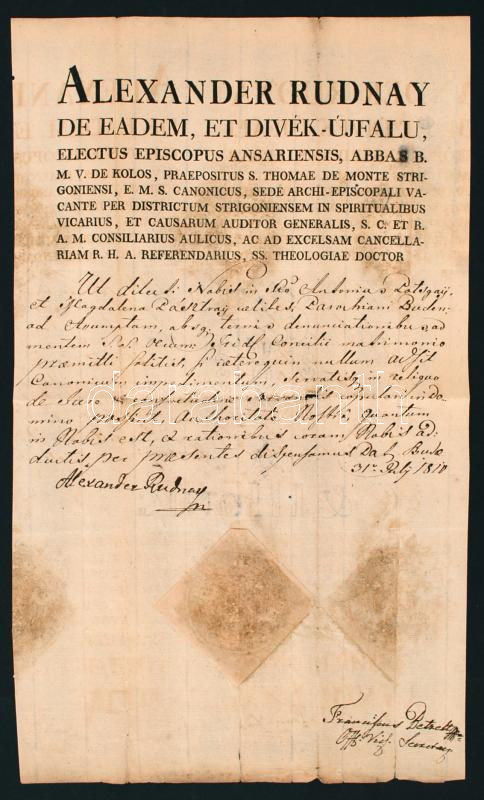 ALEXANDER RUDNAY
DE EADEM, ET DIVÉK-ÚJFALU,
ELECTUS EPISCOPUS ANSARIENSIS, ABBAS B.
M. V. DE KOLOS, PRAEPOSITUS S. THOMAE DE MONTE STRI-
GONIENSI, E. M. S. CANONICUS, SEDE ARCHI-EPISCOPALI VA-
CANTE PER DISTRICTUM STRIGONIENSEM IN SPIRITUALIBUS
VICARIUS, ET CAUSARUM AUDITOR GENERALIS, S. C. ET R.
A. M. CONSILIARIUS AULICUS, AC AD EXCELSAM CANCELLA-
RIAM R. H. A. REFERENDARIUS, SS. THEOLOGIAE DOCTOR
Ut dilecti Nobis in Antonius
et Magdalena Pasztray celibes, Parochiani Buden:
ad Assumptam, absq; ternis denunciationibus ad
mentem Concilii matrimonio
praemitti solitis, si ceteroquin nullum adsit
Canonicum impedimentum, servatisq; in reliquo
de Jure et consuetudine copulari in do-
mino possint Authoritate Nostra quantum
in Nobis est, et rationibus coram Nobis ad-
ductis, per praesentes dispensamus Dat. Budae
31a 1810
Alexander Rudnay
darabanth
Franciscus
Secretar